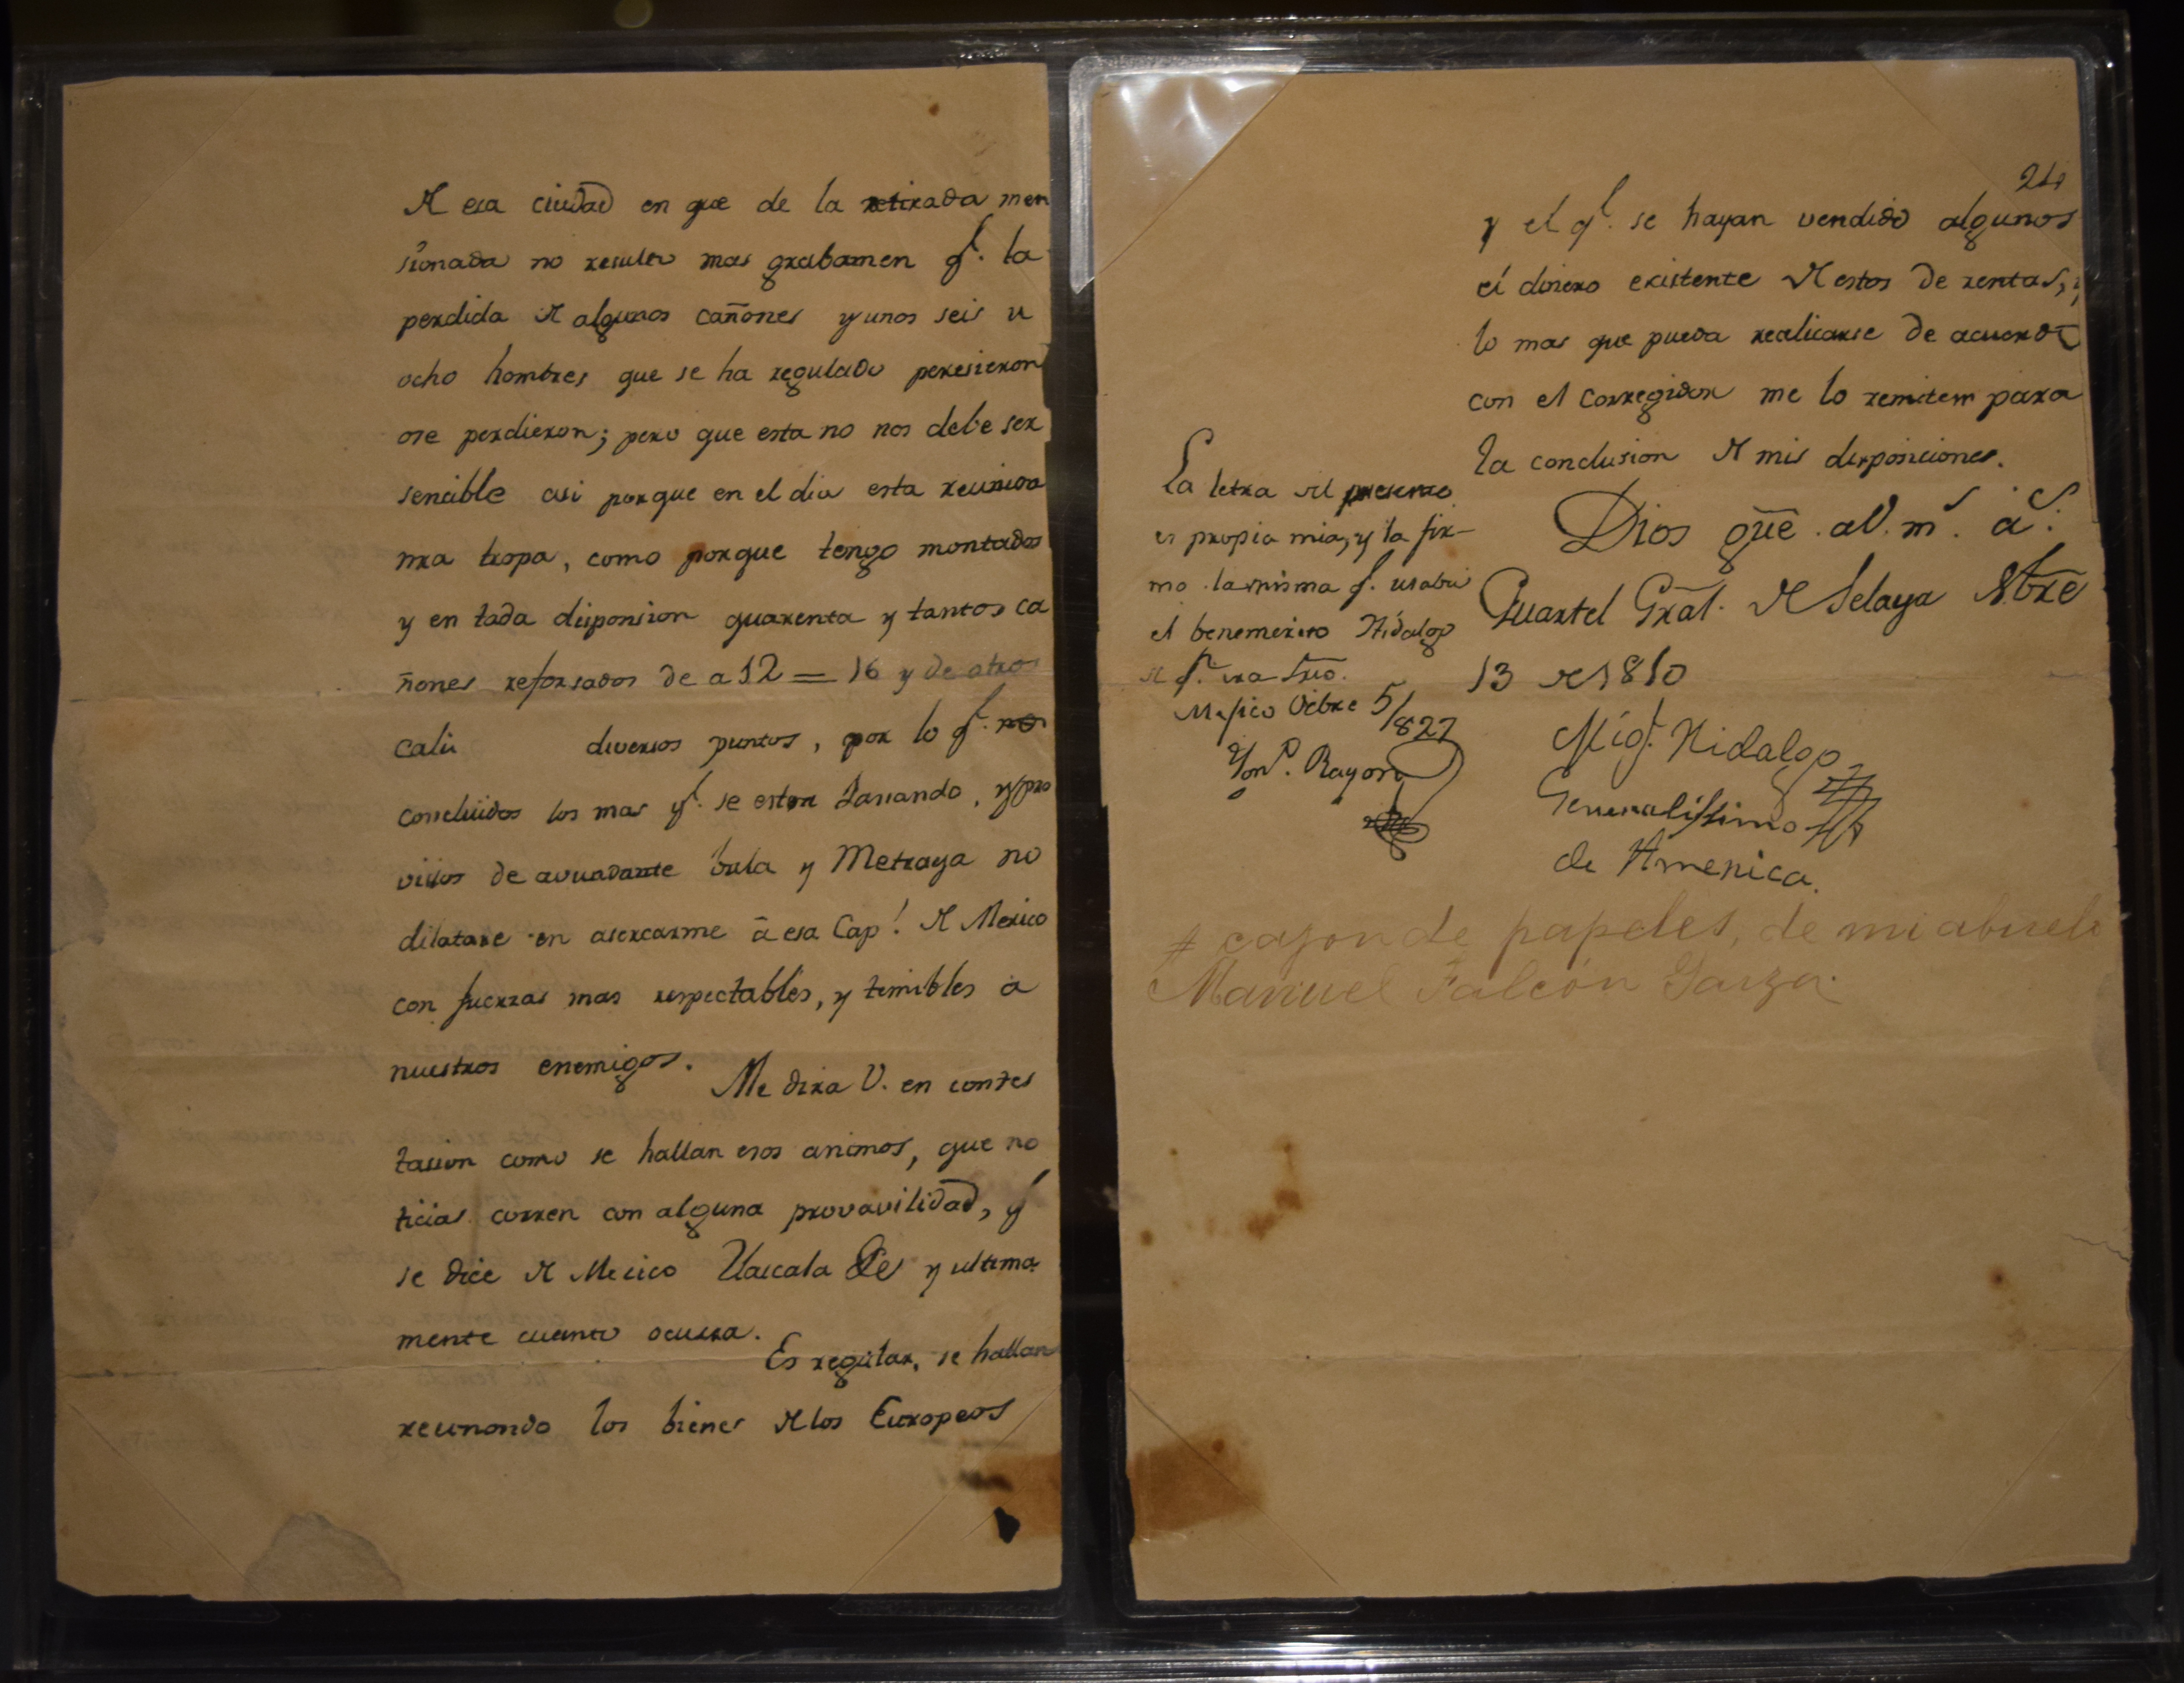 de esa ciudad en que de la retirada men
sionada no resulto mas grabamen q.e la
perdida de algunos cañones y unos seis u
ocho hombres que se ha regulado peresieron
ose perdieron; pero que esta no nos debe ser
sencible asi porque en el dia esta reunida
nra tropa, como porque tengo montados
y en toda disposision quarenta y tantos ca
ñones reforsados de a 12 = 16 y de otros
calii diversos puntos, por lo q.e
concluidos los mas q.e se estan bariando, y pro
vistos de avundante bala y Metraya no
dilatare en asercarme â esa Cap.l de Mexico
con fuerzas mas respectables, y temibles a
nuestros enemigos.
Me dira V. en contes
tasion como se hallan esos animos, que no
ticias corren con alguna provavilidad, q
se dice de Mexico Tlascala &c y ultima
mente cuanto ocurra.
Es regular, se hallan
reunondo los bienes de los Europeos
y el q.e se hayan vendido algunos
el dinero existente de estos de rentas, y
lo mas que pueda realicarse de acuerdo
con el corregidor me lo remitem para
la conclusion de mis disposiciones.
Dios güe. a V. m.s a.s
Quartel Gral. de Selaya Nbre
13 de 1810
Mig.l Hidalgo
Generalissimo
de America.
La letra del presente
es propia mia, y la fir-
ma la misma q.e usaba
el benemerito Hidalgo
Mexico Octbre 5/827
Ign.o Rayon
# cajon de papeles, de mi abuelo
Manuel Falcón Garza.